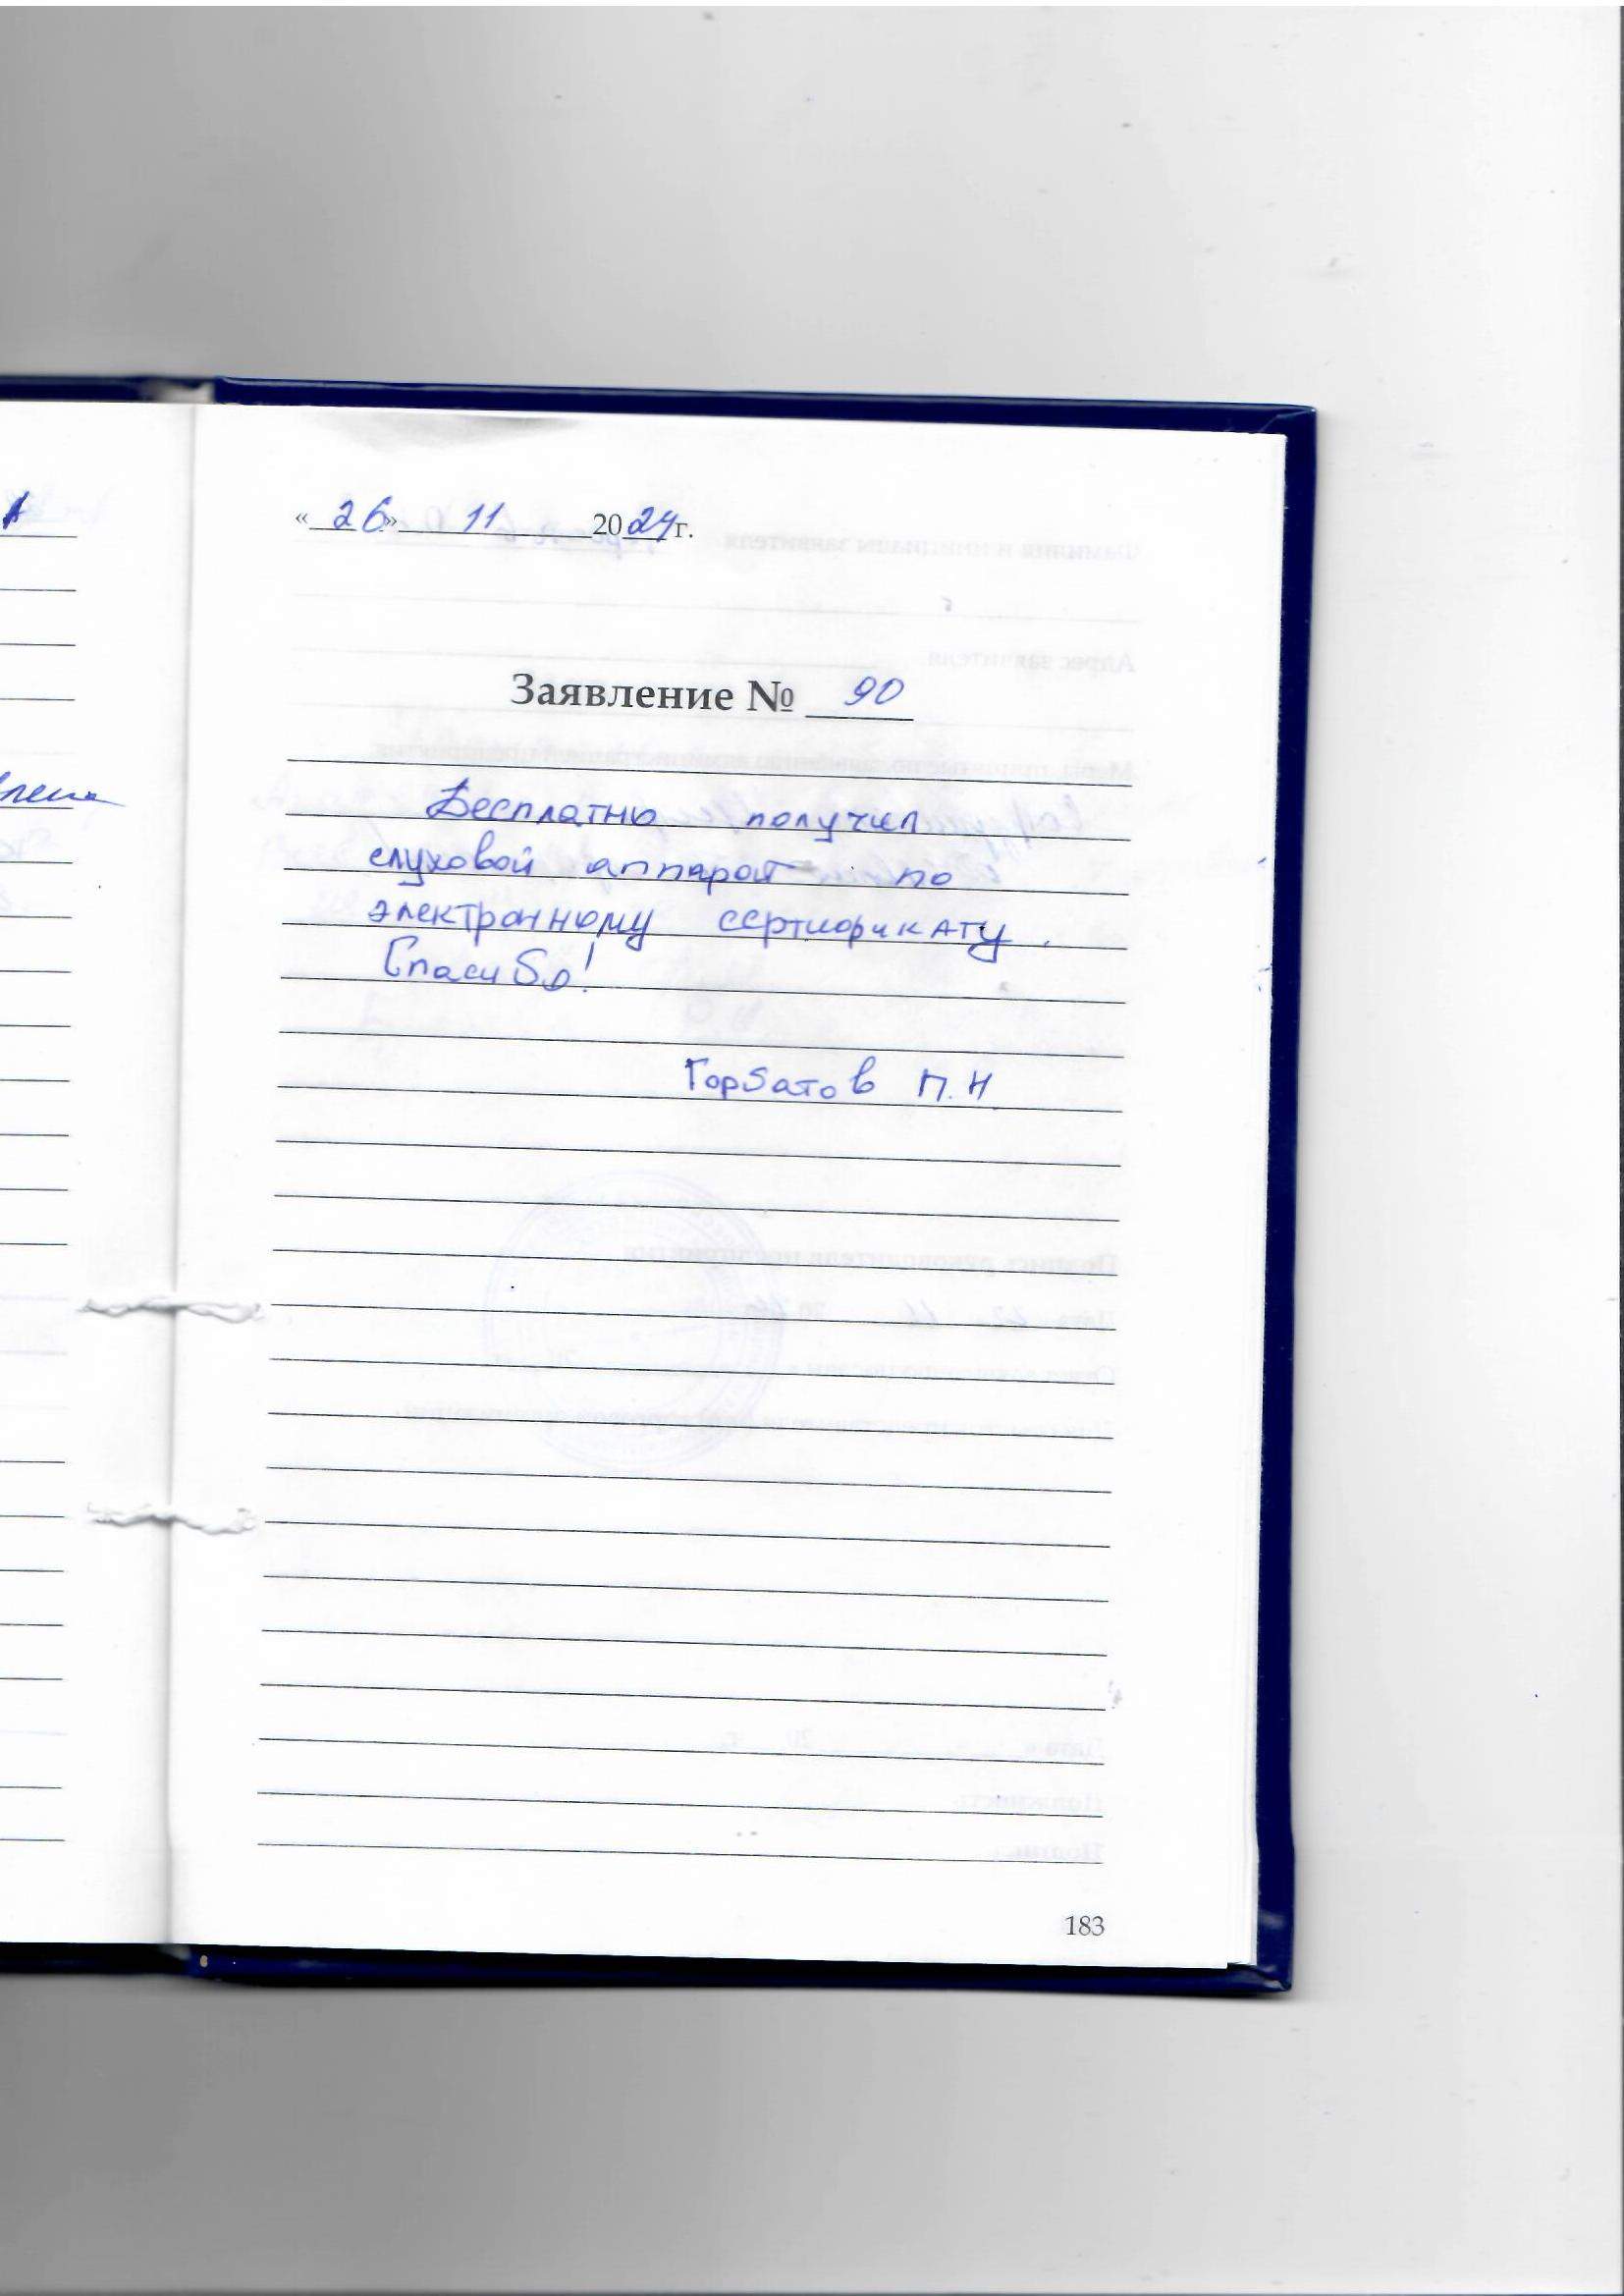 «26» 11 2024 г.
Заявление № 90
Бесплатно получил
слуховой аппарат по
электронному сертификату.
Спасибо!
Горбатов П.Н
183